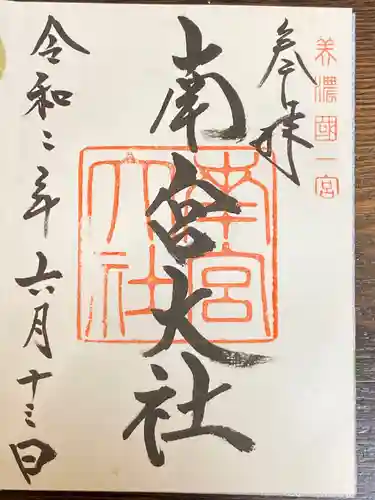 美濃國一宮
参拝
南宮大社
南宮大社
令和二年六月十三日